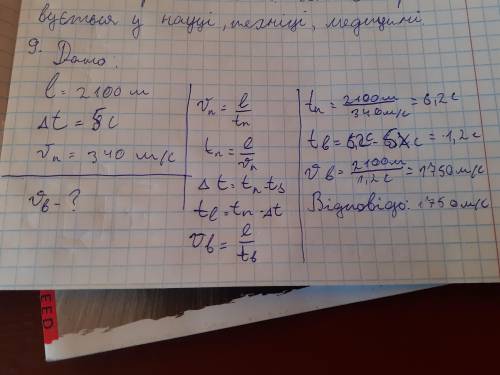 вується у науці, техніці, медицині.
9. Дано:
l = 2100 м
Δt = 5с
vп = 340 м/с
vв - ?
vп = l/tп
tп = l/vп
Δt = tп - tв
tв = tп - Δt
vв = l/tв
tп = 2100м/340м/с = 6,2с
tв = 6,2с - 5с = 1,2с
vв = 2100м/1,2с = 1750м/с
Відповідь: 1750м/с
EED